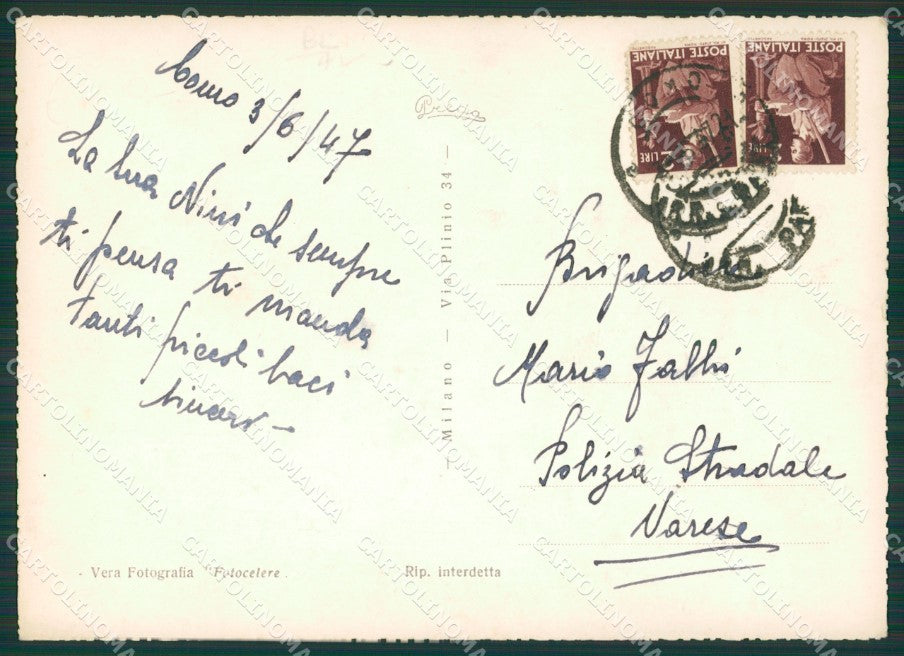 Como 3/6/47
La tua Ninì che sempre
ti pensa ti manda
tanti piccoli baci
sinceri -
Milano — Via Plinio 34 —
POSTE ITALIANE
LIRE
POSTE ITALIANE
LIRE
Brigadiere
Mario Fabbi
Polizia Stradale
Varese
- Vera Fotografia "Fotocelere.
Rip. interdetta
CARTOLINOMANIA